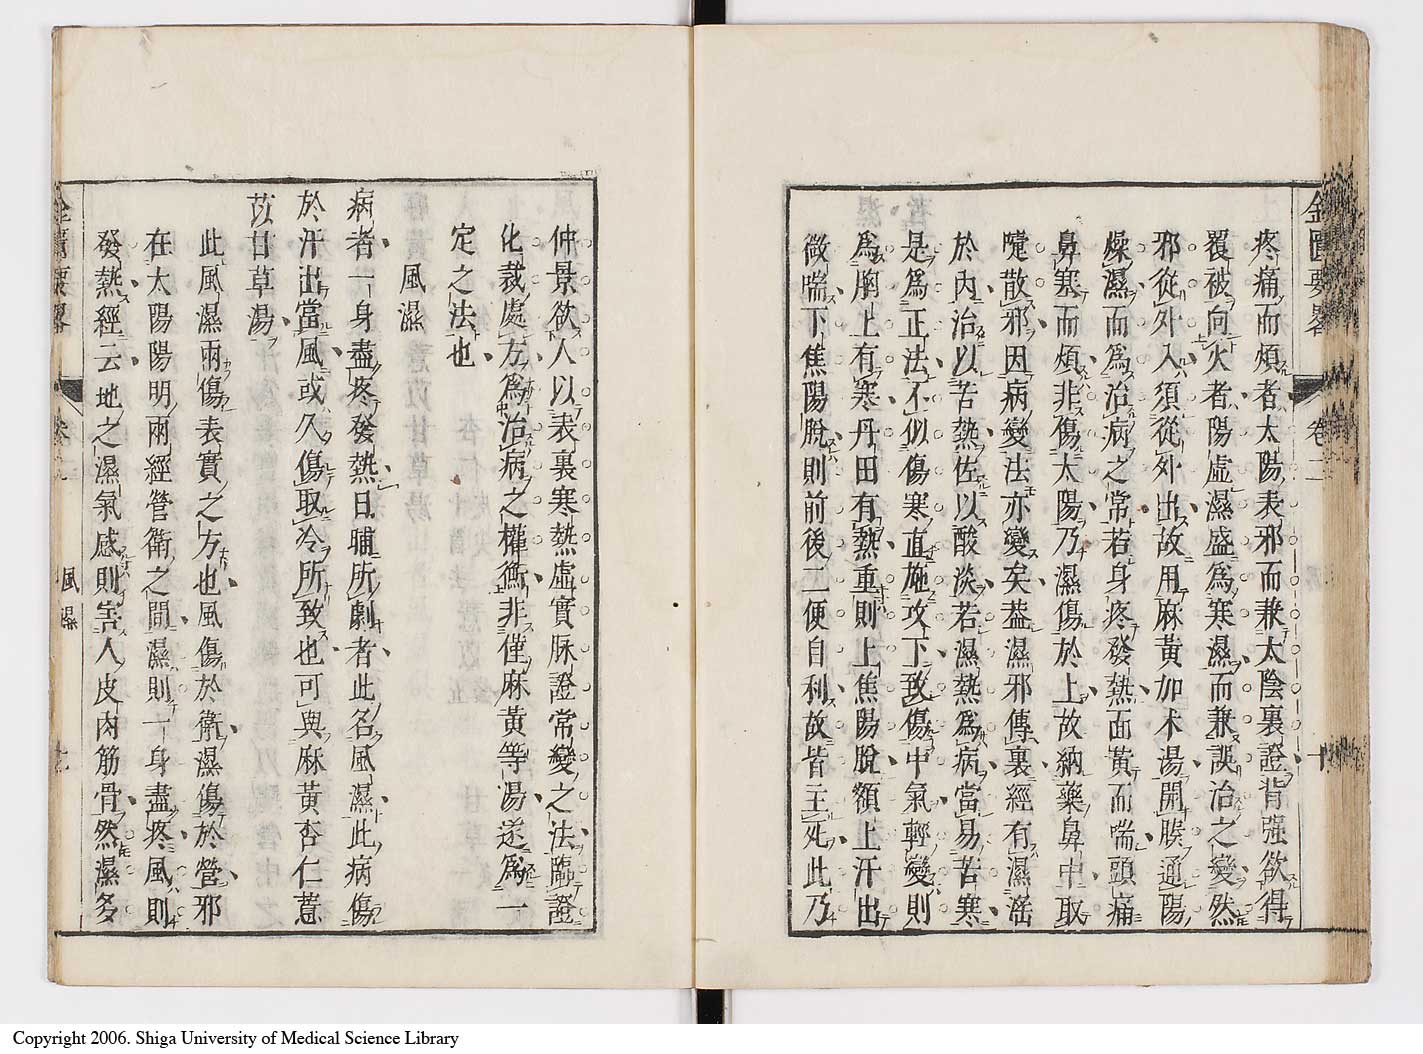 金匱要畧 卷二 十
疼痛而煩者太陽表邪而兼太陰裏證背强欲得
覆被向火者陽虛濕盛爲寒濕而兼誤治之變然
邪從外入須從外出故用麻黃加术湯開腠通陽
燥濕而爲治病之常若身疼發熱面黃而喘頭痛
鼻塞而煩非傷太陽乃濕傷於上故納藥鼻中取
嚏散邪因病變法亦變矣葢濕邪傳裏經有濕淫
於內治以苦熱佐以酸淡若濕熱爲病當易苦寒
是爲正法不似傷寒直施攻下致傷中氣輕變則
爲胸上有寒丹田有熱重則上焦陽脫額上汗出
微喘下焦陽脫則前後二便自利故皆主死此乃
仲景欲人以表裏寒熱虛實脉證常變之法臨證
化裁處方爲治病之權衡非僅麻黃等湯遂爲一
定之法也
風濕
病者一身盡疼發熱日晡所劇者此名風濕此病傷
於汗出當風或久傷取冷所致也可與麻黃杏仁薏
苡甘草湯
此風濕兩傷表實之方也風傷於衞濕傷於營邪
在太陽陽明兩經營衞之間濕則一身盡疼風則
發熱經云地之濕氣感則害人皮肉筋骨然濕多
金匱要畧 卷二 風濕
Copyright 2006. Shiga University of Medical Science Library